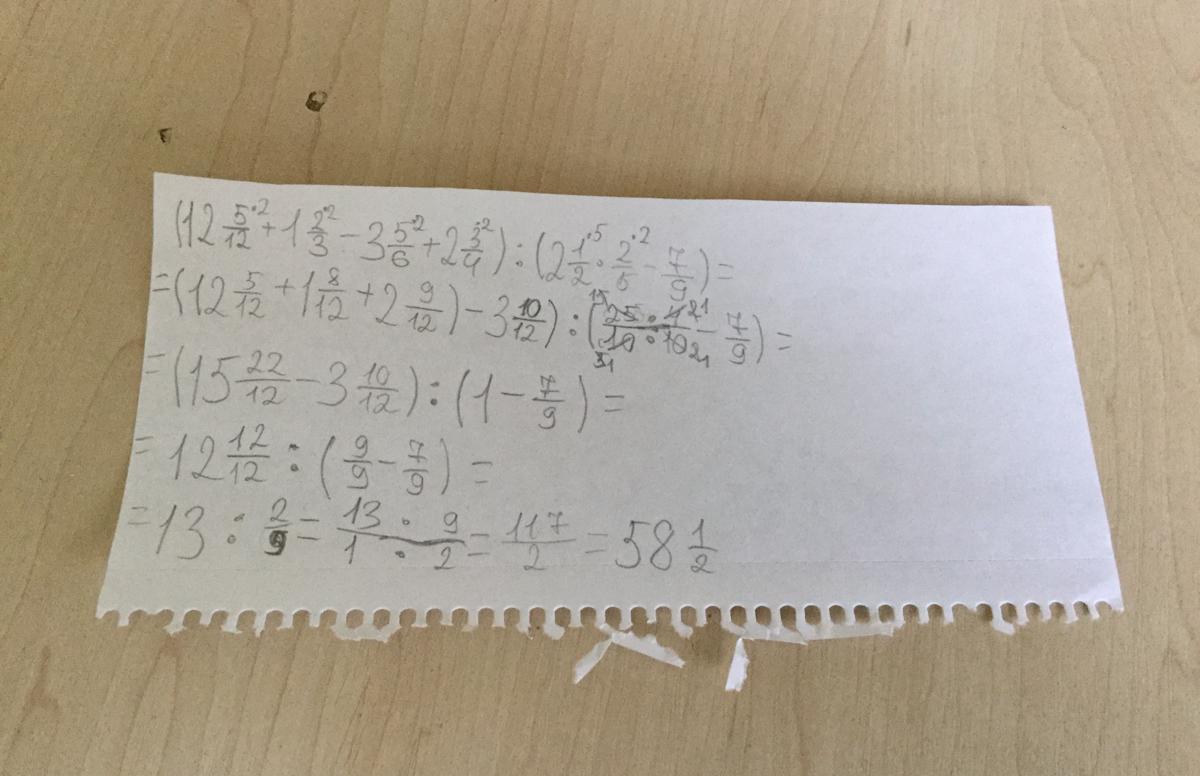 (12 5/12 ·2 + 1 2/3 ·2 − 3 5/6 ·2 + 2 3/4 ·2) : (2 1/2 ·5 · 2/5 ·2 − 7/9) =
= (12 5/12 + 1 8/12 + 2 9/12) − 3 10/12) : (25·4/10·10 − 7/9) =
= (15 22/12 − 3 10/12) : (1 − 7/9) =
= 12 12/12 : (9/9 − 7/9) =
= 13 : 2/9 = 13 · 9/1 · 2 = 117/2 = 58 1/2